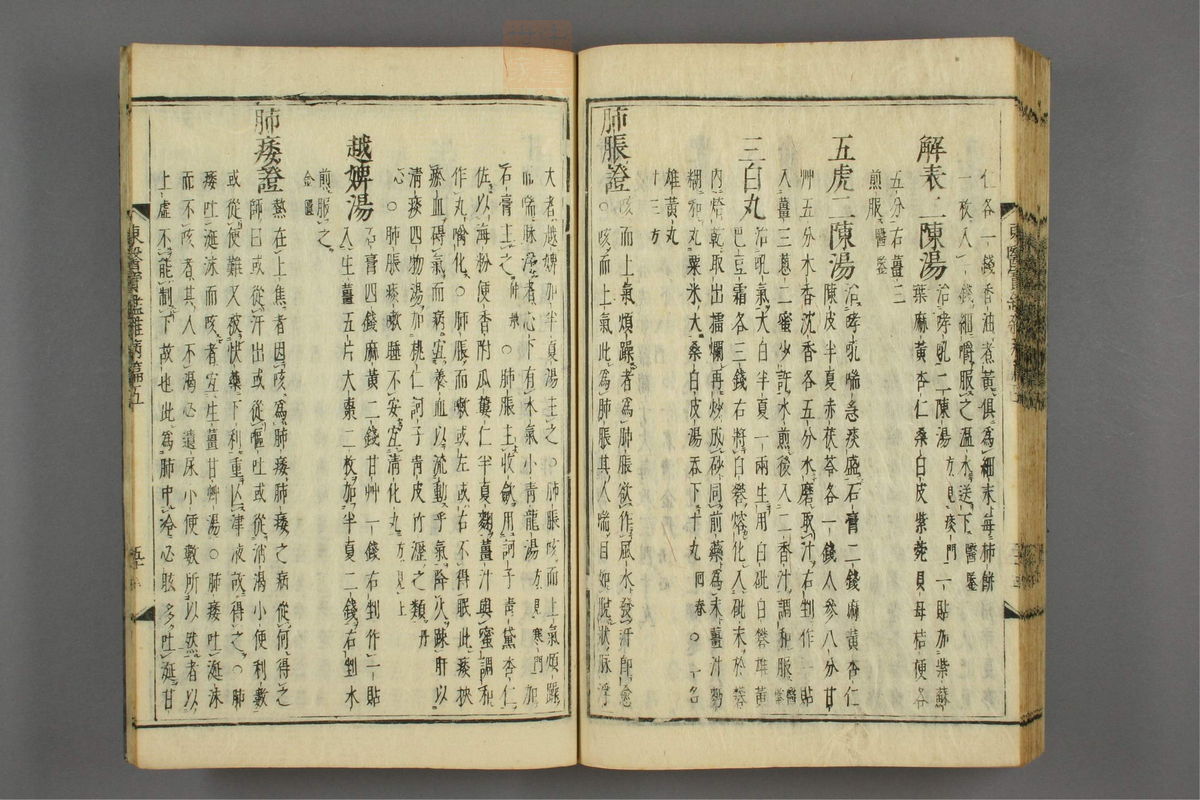 仁各一錢香油煮黃俱爲細末每柿餅
一枚入一錢細嚼服之溫水送下醫鑑
解表二陳湯治哮吼二陳湯方見痰門一貼加紫蘇
葉麻黃杏仁桑白皮紫菀貝母桔梗各
五分右薑三
煎服醫鑑
五虎二陳湯治哮吼喘急痰盛石膏二錢麻黃杏仁
陳皮半夏赤茯苓各一錢人參八分甘
艸五分木香沈香各五分水磨取汁右剉作一貼
入薑三蔥二蜜少許水煎後入二香汁調和服醫鑑
三白丸治吼氣大白半夏一兩生用白砒白礬雄黃
巴豆霜各三錢右將白礬熔化入砒末於礬
內焙乾取出擂爛再炒成砂同前藥爲末薑汁麪
糊和丸粟米大桑白皮湯呑下十丸回春○一名
雄黃丸
肺脹證咳而上氣煩躁者爲肺脹欲作風水發汗卽愈
○咳而上氣此爲肺脹其人喘目如脫狀脉浮
大者越婢加半夏湯主之○肺脹咳而上氣煩躁
而喘脉浮者心下有水氣小靑龍湯方見寒門加
石膏主之仲景○肺脹主收斂用訶子靑黛杏仁
佐以海粉便香附瓜蔞仁半夏麴薑汁與蜜調和
作丸噙化○肺脹而嗽或左或右不得眠此痰挾
瘀血碍氣而病宜養血以流動乎氣降火踈肝以
淸痰四物湯加桃仁訶子靑皮竹瀝之類丹
心○肺脹痰嗽睡不安宜淸化丸方見上
越婢湯石膏四錢麻黃二錢甘艸一錢右剉作一貼
入生薑五片大棗二枚加半夏二錢右剉水
煎服之
金匱
肺痿證熱在上焦者因咳爲肺痿肺痿之病從何得之
師曰或從汗出或從嘔吐或從消渴小便利數
或從便難又被快藥下利重亡津液故得之○肺
痿吐涎沫而咳者宜生薑甘艸湯○肺痿吐涎沫
而不咳者其人不渴必遺尿小便數所以然者以
上虛不能制下故也此爲肺中冷必眩多吐涎甘
東醫寶鑑雜病篇五